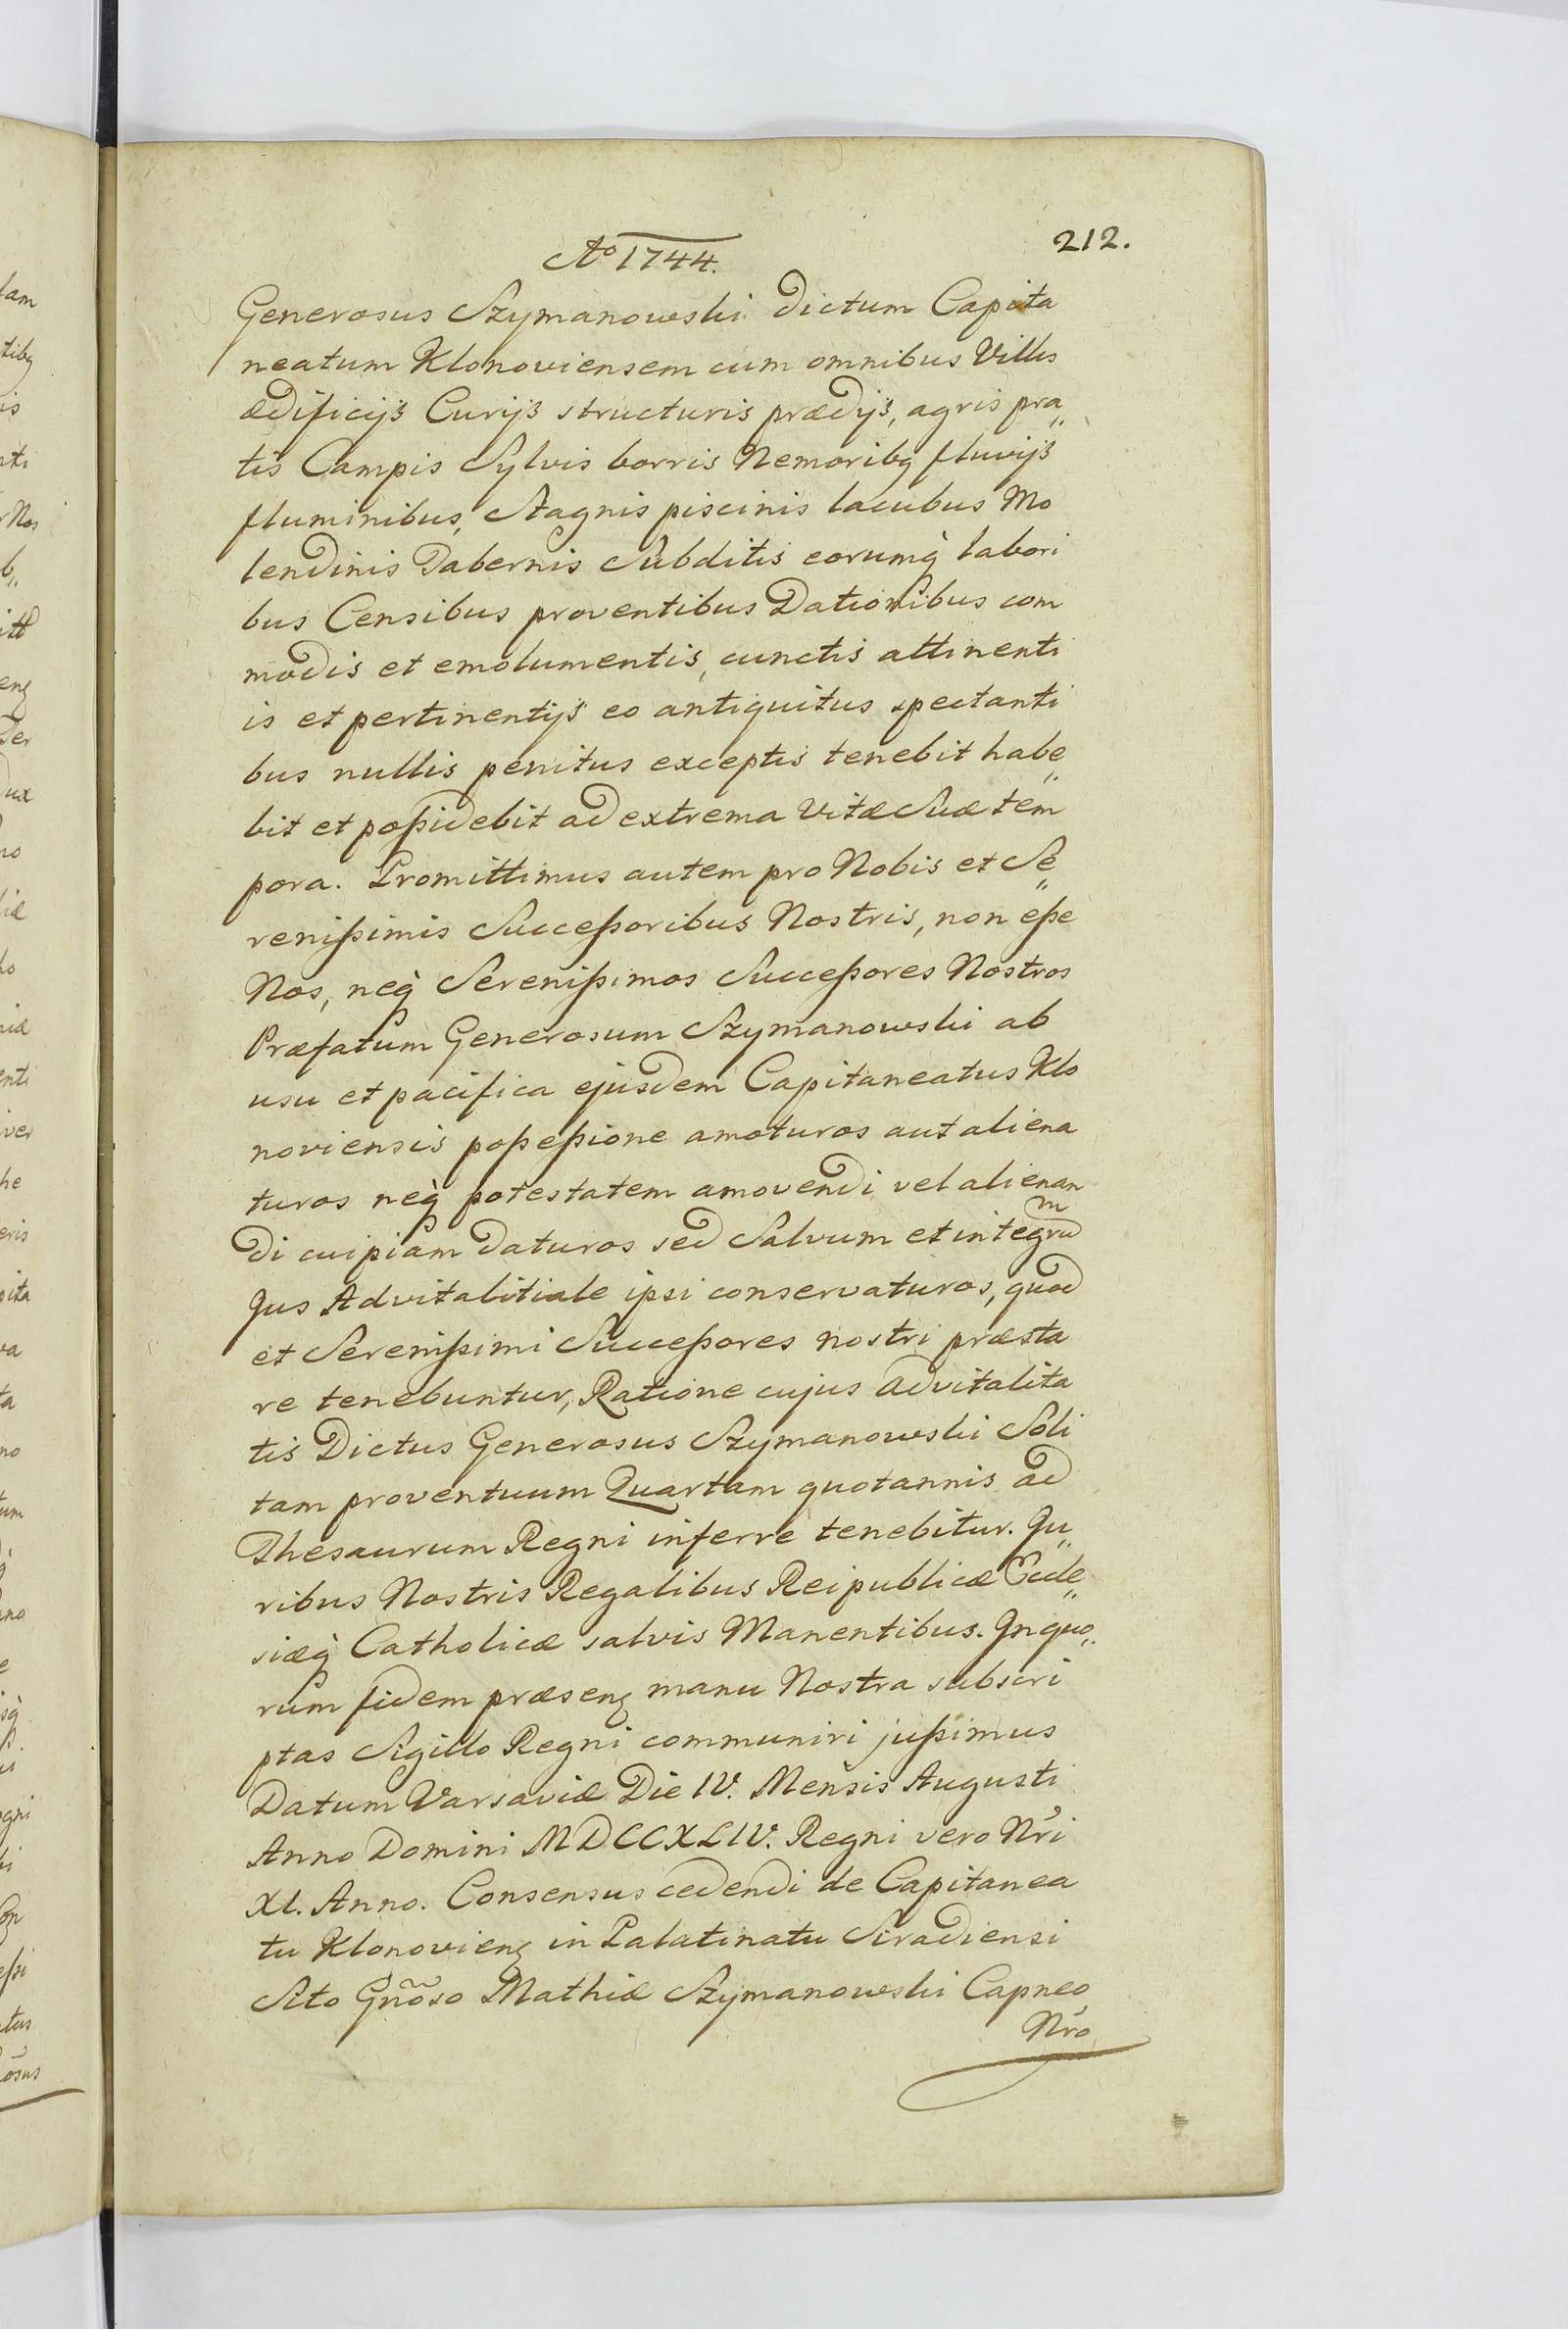 212.
Ao 1744.
Generosus Szymanowski dictum Capita
neatum Klonoviensem cum omnibus Villis
ædificijs Curijs structuris prædijs, agris pra„
tis Campis Sylvis borris Nemoribq fluvijs
fluminibus, Stagnis piscinis lacubus Mo
lendinis Tabernis Subditis eorumq̀ labori
bus Censibus proventibus Dationibus com
modis et emolumentis, cunctis attinenti
is et pertinentijs eo antiquitus spectanti
bus nullis penitus exceptis tenebit habe„
bit et poßidebit ad extrema Vitæ Suæ tem
pora. Promittimus autem pro Nobis et Se„
renißimis Succeßoribus Nostris, non eße
Nos, neq̀ Serenißimos Succeßores Nostros
Præfatum Generosum Szymanowski ab
usu et pacifica ejusdem Capitaneatus Klo
noviensis poßeßione amoturos aut aliena
turos neq̀ potestatem amovendi vel alienan
di cuipiam daturos sed Salvum et integrum
Jus Advitalitiale ipsi conservaturos, quod
et Serenißimi Succeßores nostri præsta
re tenebuntur, Ratione cujus advitalita
tis Dictus Generosus Szymanowski Soli
tam proventuum Quartam quotannis ad
Thesaurum Regni inferre tenebitur. Ju„
ribus Nostris Regalibus Reipublicæ Eccle„
siæq̀ Catholicæ salvis Manentibus. In quo„
rum fidem præsenq manu Nostra subscri
ptas Sigillo Regni communiri jußimus
Datum Varsaviæ Die IV. Mensis Augusti
Anno Domini MDCCXLIV. Regni vero Nr̃i
XI. Anno. Consensus cedendi de Capitanea
tu Klonovienq in Palatinatu Siradiensi
Sito Gnõso Mathiæ Szymanowski Capneo
Nr̃o